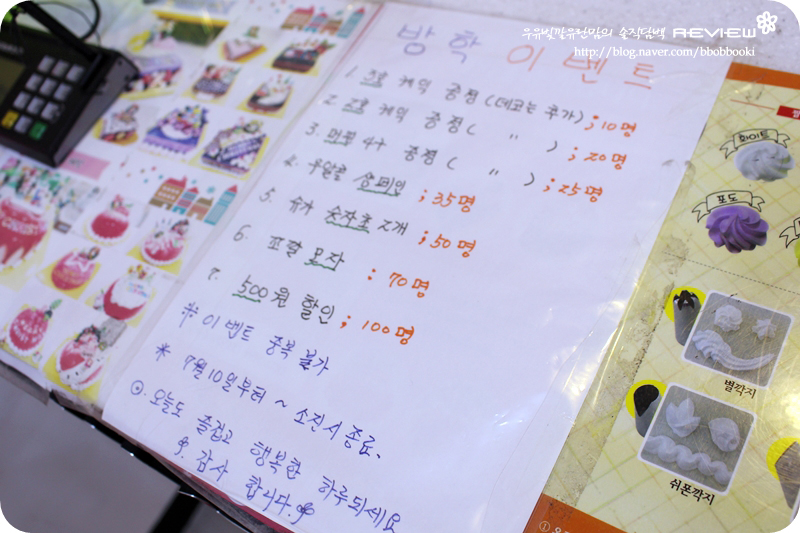 우유빛깔유전맘의 솔직담백 REVIEW
http://blog.naver.com/bbobbooki
방학 이벤트
1. 3호 케익 증정 (데코는 추가) ; 10명
2. 2호 케익 증정 ( " ) ; 20명
3. 머핀 4구 증정 ( " ) ; 25명
4. 무알콜 샴페인 ; 35명
5. 슈가 숫자초 2개 ; 50명
6. 꼬깔 모자 : 70명
7. 500원 할인 ; 100명
※ 이벤트 중복 불가
※ 7월 10일부터 ~ 소진시 종료.
⊙. 오늘도 즐겁고 행복한 하루되세요
감사합니다.
화이트
포도
별깍지
쉬폰깍지
①